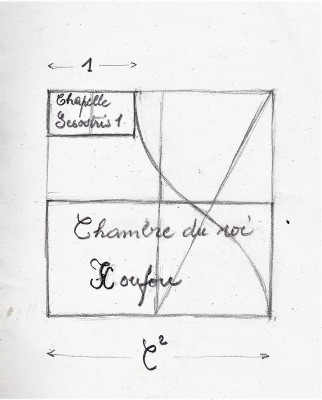 1
Chapelle
Sésostris 1
Chambre du roi
Koufou